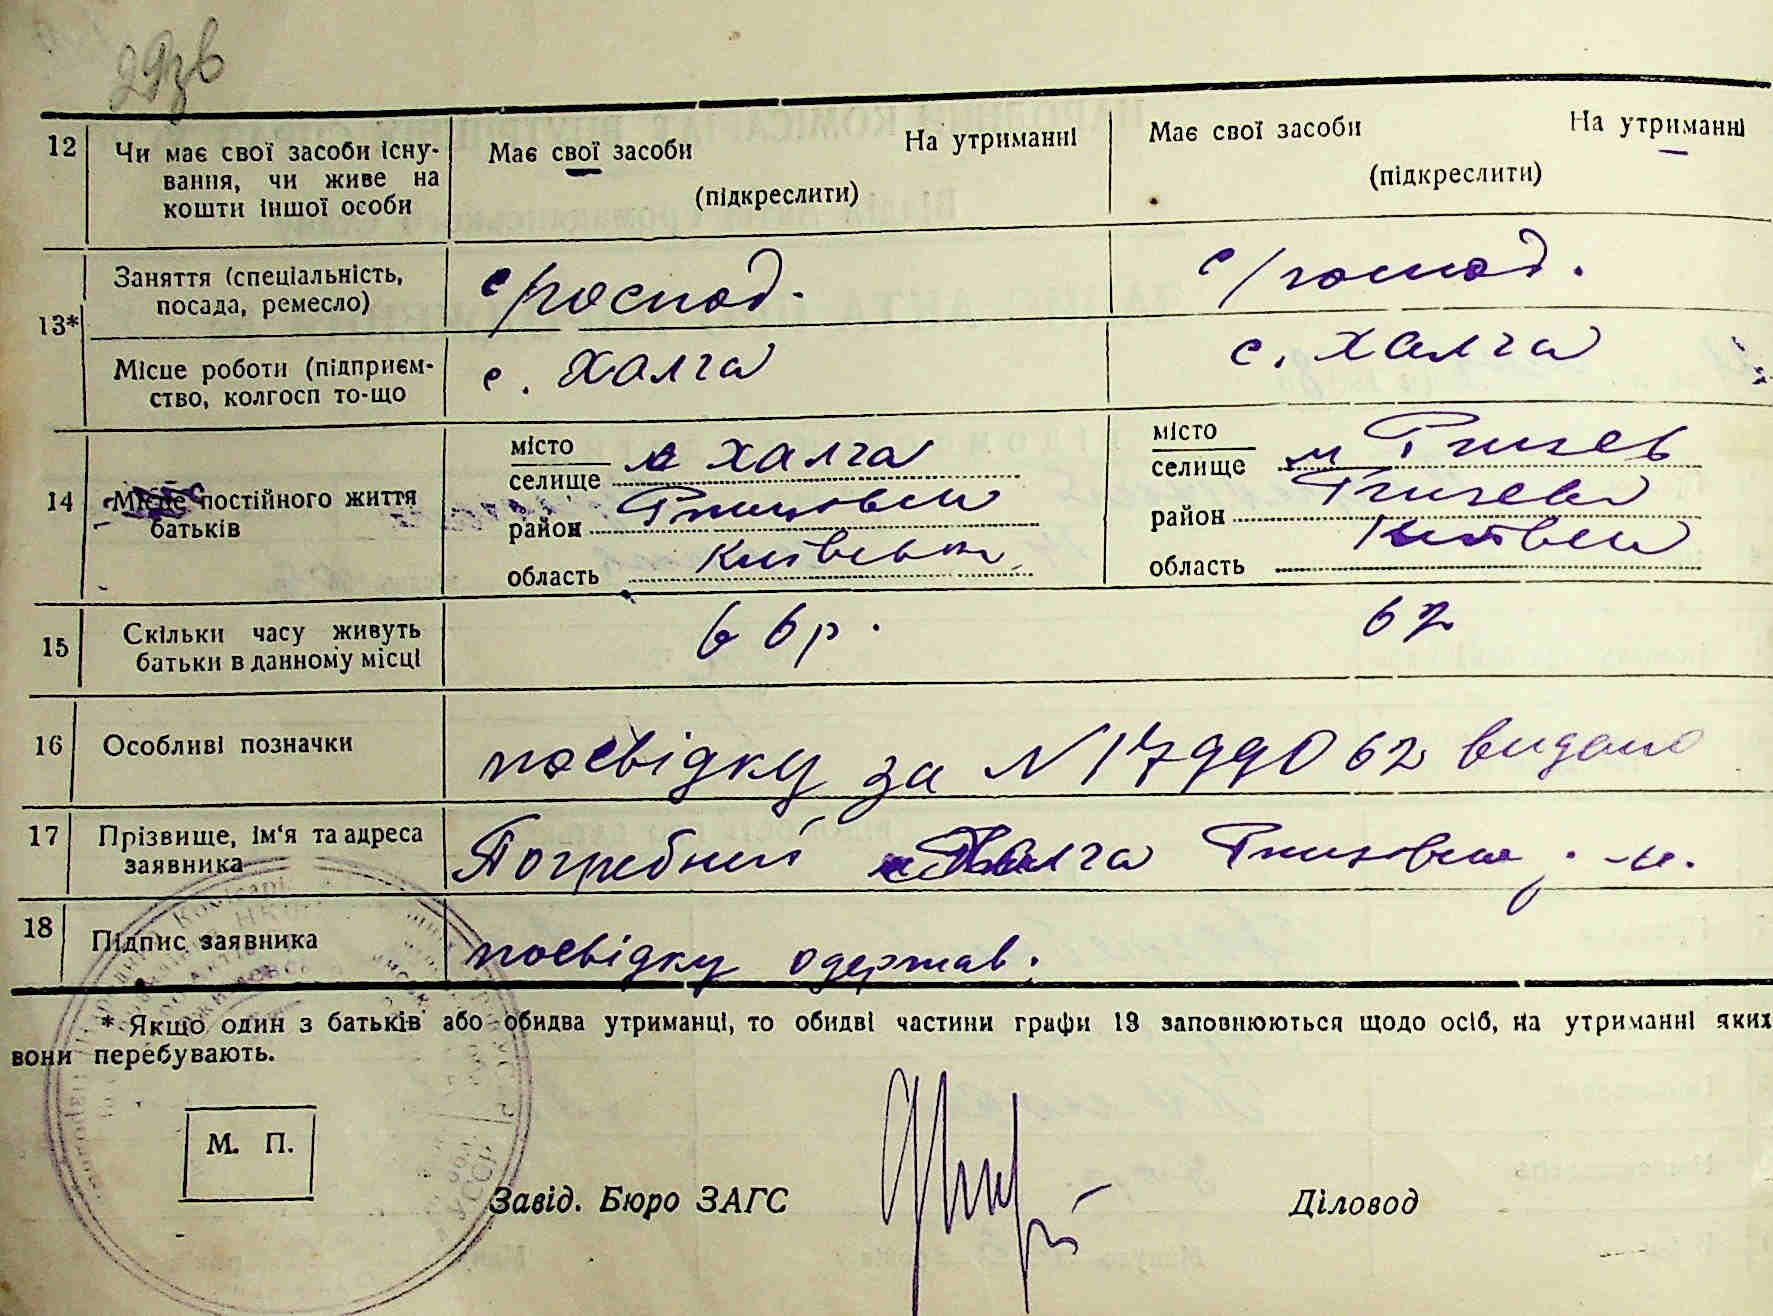 29зв
12 Чи має свої засоби існу- Має свої засоби На утриманні Має свої засоби На утриманні
вання, чи живе на (підкреслити) (підкреслити)
кошти іншої особи
13* Заняття (спеціальність, с/господ. с/господ.
посада, ремесло)
Місце роботи (підприєм- с. Халча с. Халча
ство, колгосп то-що
14 Місце постійного життя батьків
місто
селище Халча
район
область Київська
місто
селище м Ржищев
район
область
15 Скільки часу живуть 66 р. 62
батьки в данному місці
16 Особливі позначки посвідку за N 1799062 видано
17 Прізвище, ім'я та адреса Погребний Халча
заявника
18 Підпис заявника посвідку одержав.
* Якщо один з батьків або обидва утриманці, то обидві частини графи 13 заповнюються щодо осіб, на утриманні яких
вони перебувають.
М. П.
Завід. Бюро ЗАГС Діловод